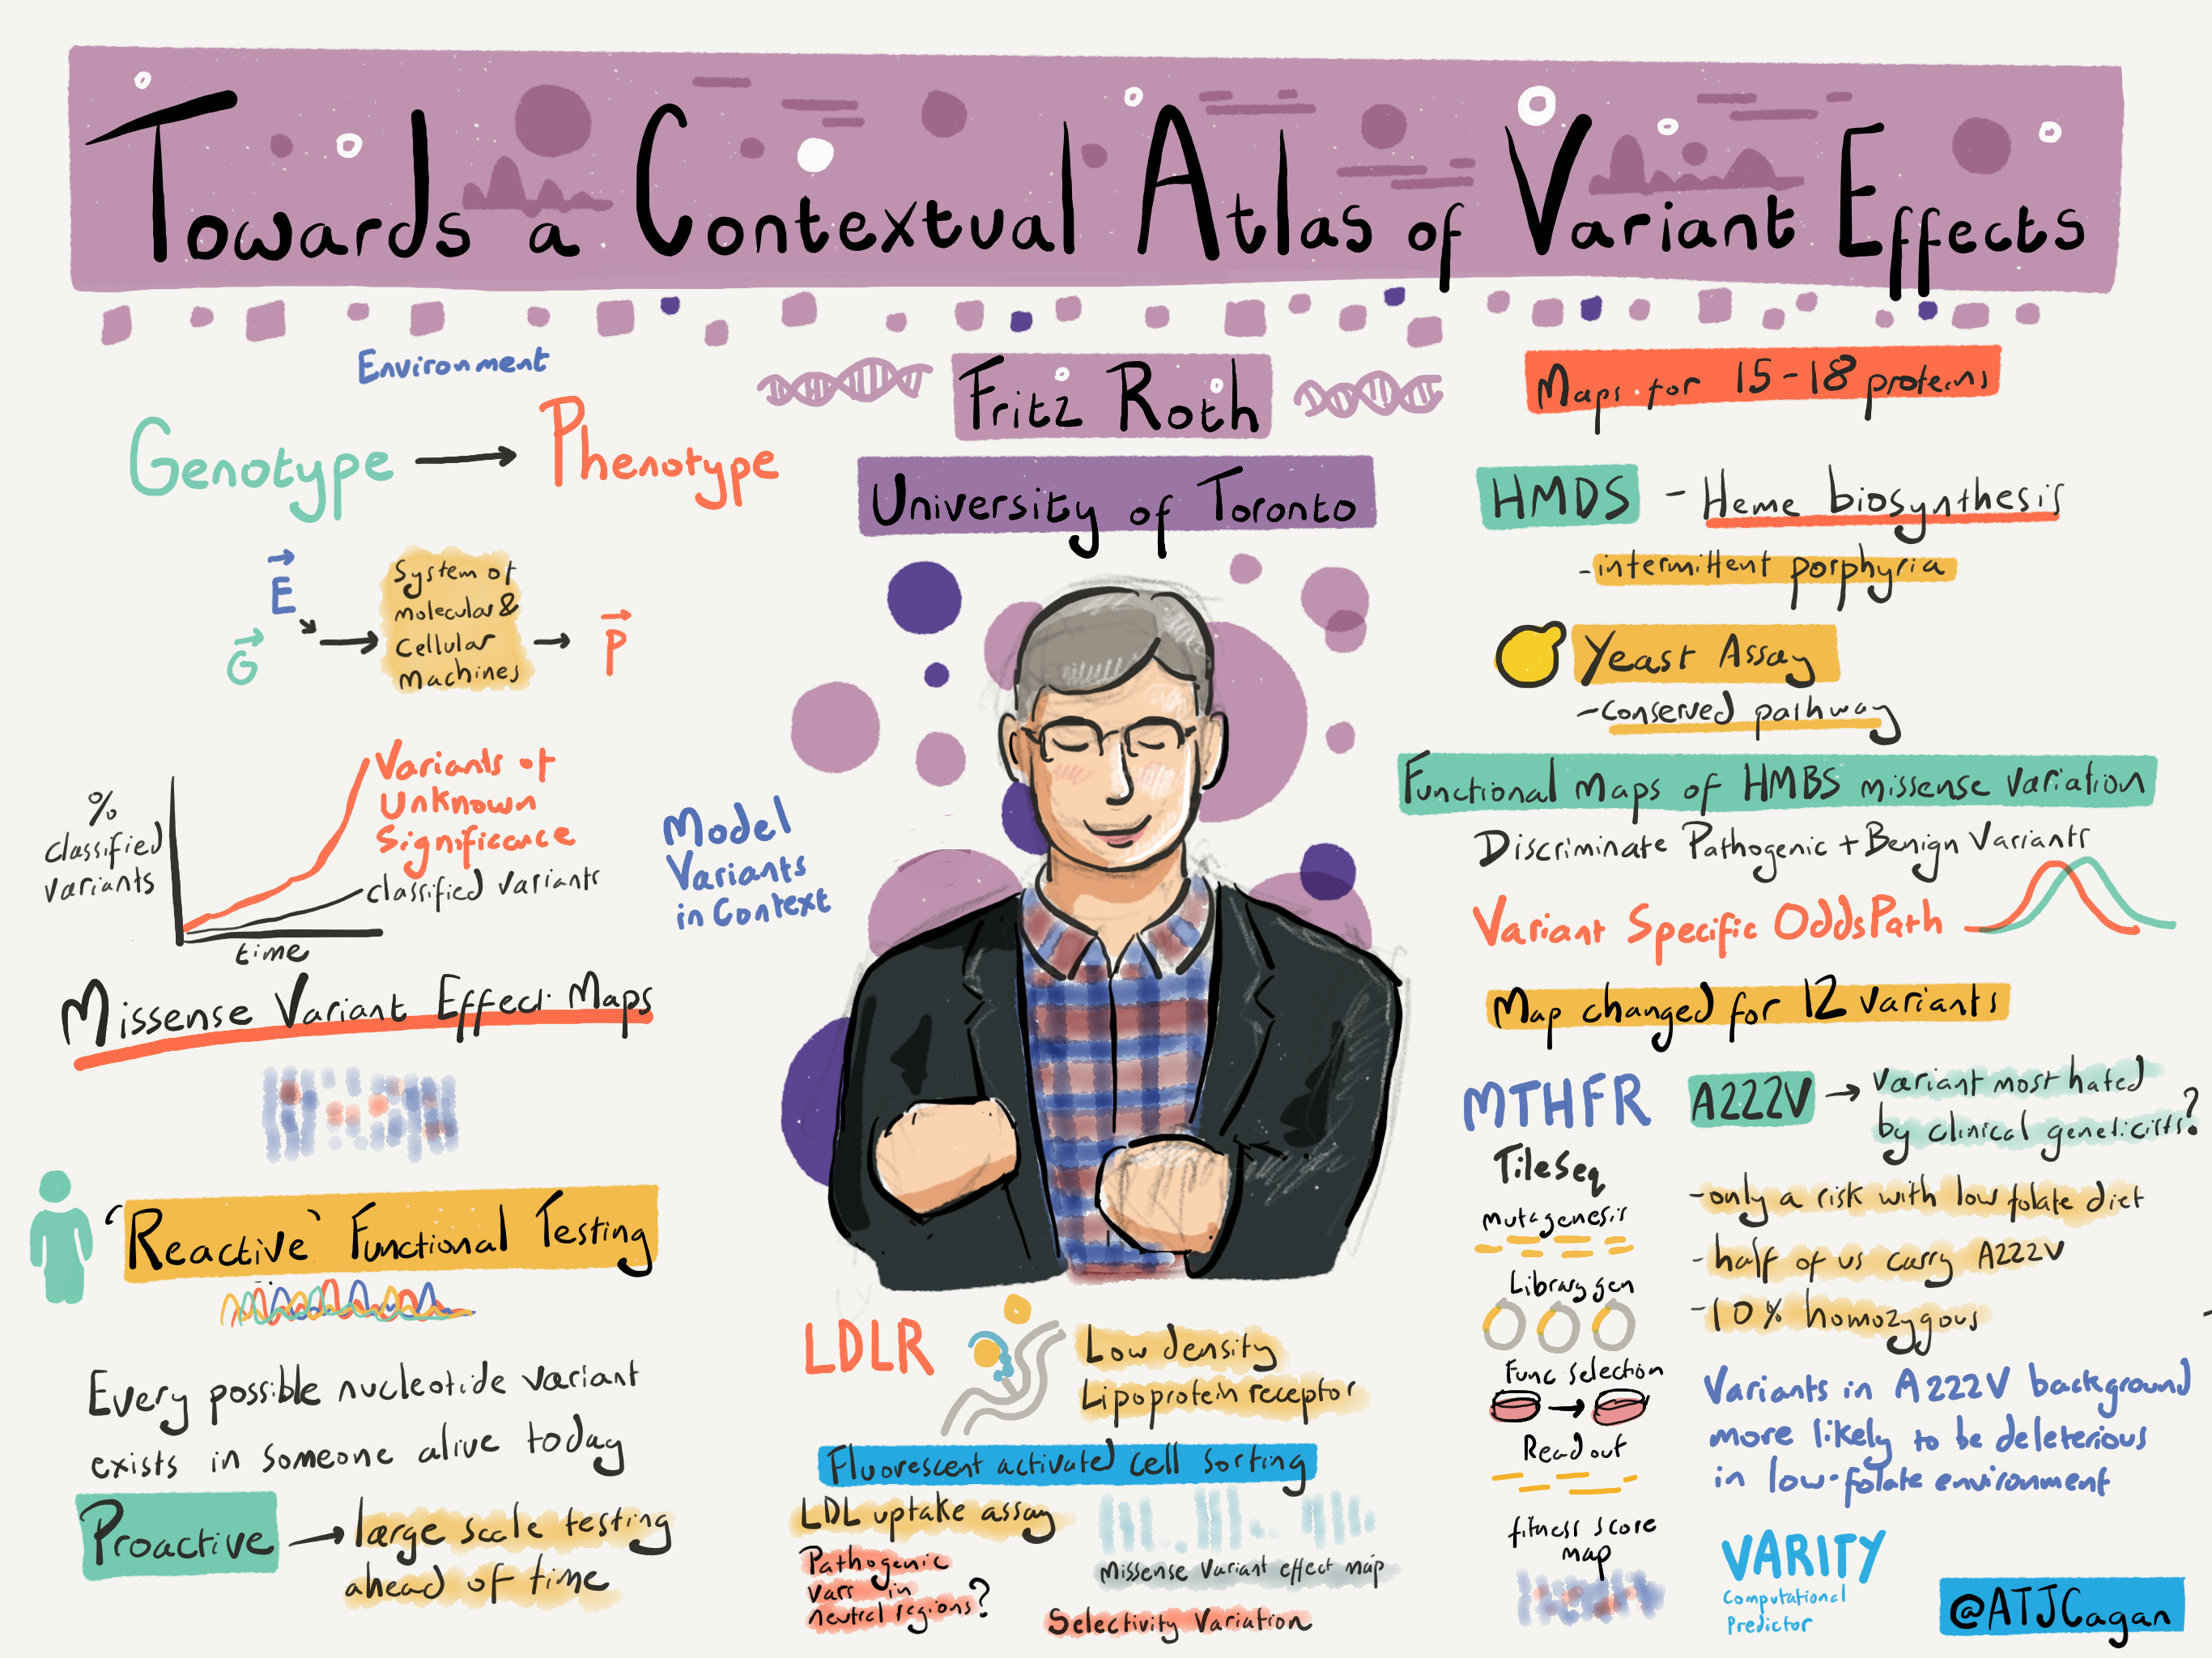 Towards a Contextual Atlas of Variant Effects
Fritz Roth
University of Toronto
Environment
Genotype → Phenotype
E
G
System of
molecular &
Cellular
machines
P
%
classified
variants
Variants of
Unknown
Significance
classified variants
time
Model
Variants
in Context
Missense Variant Effect Maps
'Reactive' Functional Testing
Every possible nucleotide variant
exists in someone alive today
Proactive → large scale testing
ahead of time
LDLR
Low density
Lipoprotein receptor
Fluorescent activated cell sorting
LDL uptake assay
Pathogenic
vars in
neutral regions?
Missense Variant effect map
Selectivity Variation
Maps for 15-18 proteins
HMDS - Heme biosynthesis
- intermittent porphyria
Yeast Assay
- conserved pathway
Functional maps of HMBS missense variation
Discriminate Pathogenic + Benign Variants
Variant Specific OddsPath
Map changed for 12 variants
MTHFR
TileSeq
mutagenesis
Library gen
Func selection
Read out
fitness score
map
A222V → variant most hated
by clinical geneticists?
- only a risk with low folate diet
- half of us carry A222V
- 10% homozygous
Variants in A222V background
more likely to be deleterious
in low-folate environment
VARITY
Computational
Predictor
@ATJCagan